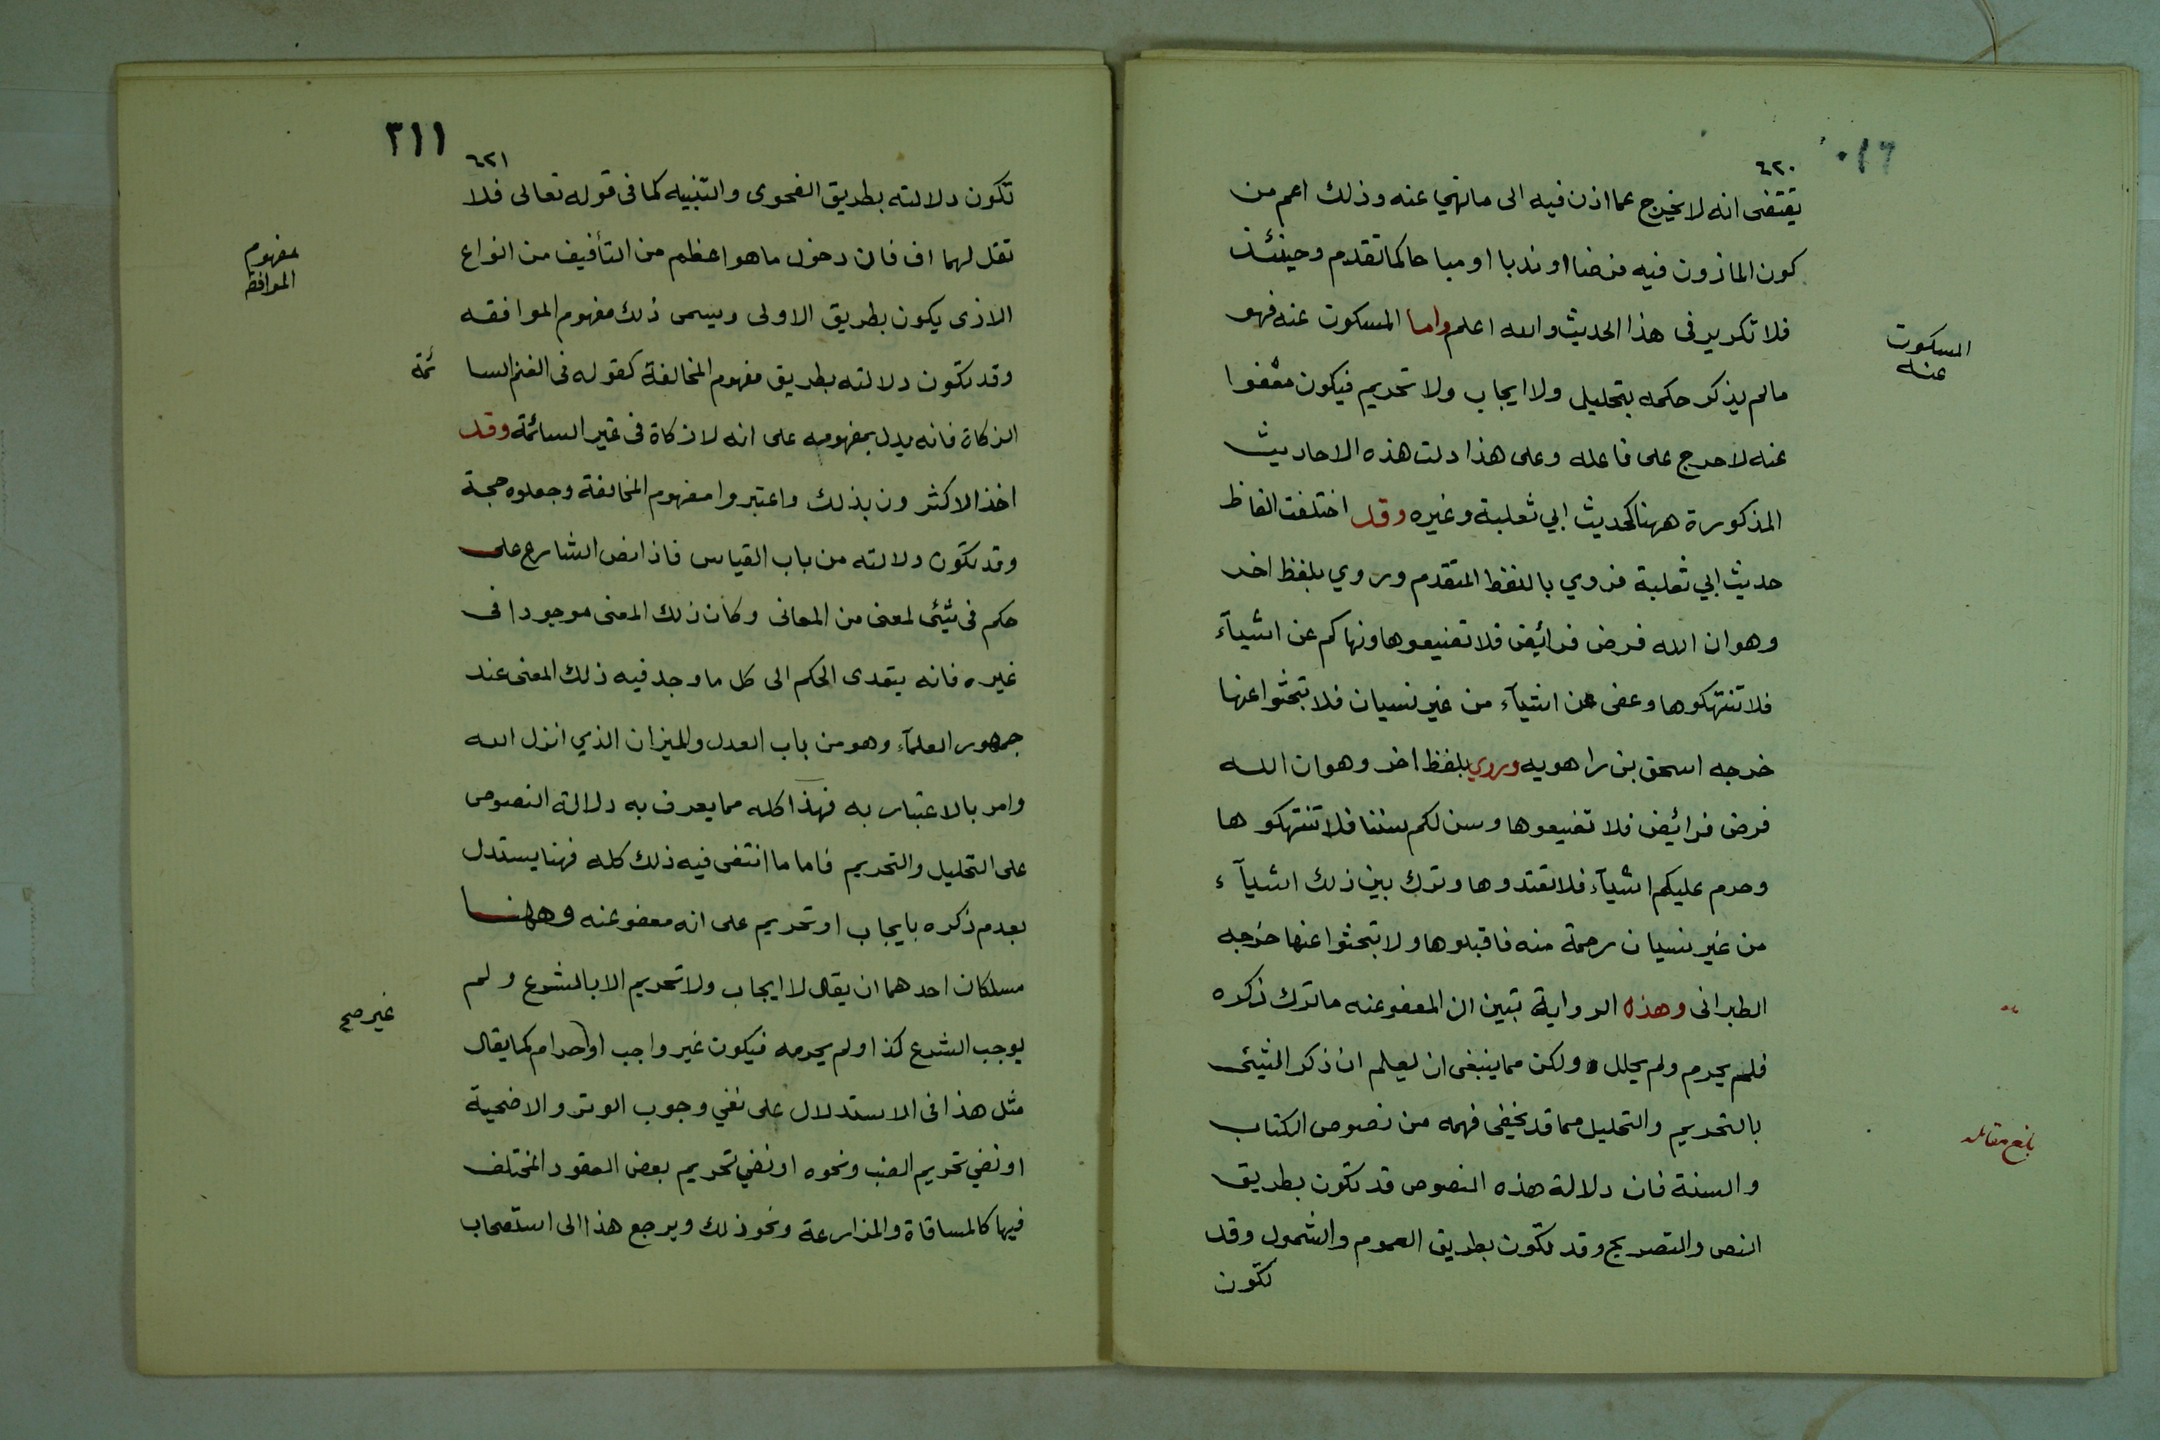 ٦٢٠
يقتضى انه لا يخرج عما اذن فيه الى ما نهي عنه وذلك اعم من
كون الماذون فيه فرضا او ندبا او مباحا كما تقدم وحينئذ
فلا تكرير فى هذا الحديث والله اعلم واما المسكوت عنه فهو
المسكوت
عنه
مالم يذكر حكمه بتحليل ولا ايجاب ولا تحريم فيكون معفوا
عنه لا حرج على فاعله وعلى هذا دلت هذه الاحاديث
المذكورة ههنا كحديث ابي ثعلبة وغيره وقد اختلفت الفاظ
حديث ابي ثعلبة فروي باللفظ المتقدم وروي بلفظ اخر
وهو ان الله فرض فرائض فلا تضيعوها ونهاكم عن اشيآء
فلا تنتهكوها وعفى عن اشيآء من غير نسيان فلا تبحثوا عنها
خرجه اسحق بن راهويه وروي بلفظ اخر وهو ان الله
فرض فرائض فلا تضيعوها وسن لكم سننا فلا تنتهكوها
وحرم عليكم اشيآء فلا تعتدوها وترك بين ذلك اشيآء
من غير نسيان رحمة منه فاقبلوها ولا تبحثوا عنها خرجه
الطبرانى وهذه الرواية تبين ان المعفو عنه ما ترك ذكره
فلم يحرم ولم يحلل ولكن مما ينبغى ان يعلم ان ذكر الشيئ
بالتحريم والتحليل مما قد يخفى فهمه من نصوص الكتاب
بلغ مقابله
والسنة فان دلالة هذه النصوص قد تكون بطريق
النص والتصريح وقد تكون بطريق العموم والشمول وقد
تكون
٣١١
٦٢١
تكون دلالته بطريق الفحوى والتنبيه كما فى قوله تعالى فلا
تقل لهما اف فان دخول ما هو اعظم من التأفيف من انواع
مفهوم
الموافقة
الاذى يكون بطريق الاولى ويسمى ذلك مفهوم الموافقه
وقد تكون دلالته بطريق مفهوم المخالفة كقوله فى الغنم السا
ئمة
الزكاة فانه يدل بمفهومه على انه لا زكاة فى غير السائمة وقد
اخذ الاكثرون بذلك واعتبروا مفهوم المخالفة وجعلوه حجة
وقد تكون دلالته من باب القياس فاذا نص الشارع على
حكم فى شيئ لمعنى من المعانى وكان ذلك المعنى موجودا فى
غيره فانه يتعدى الحكم الى كل ما وجد فيه ذلك المعنى عند
جمهور العلمآء وهو من باب العدل والميزان الذي انزل الله
وامر بالاعتبار به فهذا كله مما يعرف به دلالة النصوص
على التحليل والتحريم فاما ما انتفى فيه ذلك كله فهنا يستدل
بعدم ذكره بايجاب او تحريم على انه معفو عنه وههنا
مسلكان احدهما ان يقال لا ايجاب ولا تحريم الا بالشرع ولم
يوجب الشرع كذا ولم يحرمه فيكون غير واجب او حرام كما يقال
غير صح
مثل هذا فى الاستدلال على نفي وجوب الوتر والاضحية
او نفي تحريم الضب ونحوه او نفي تحريم بعض العقود المختلف
فيها كالمساقاة والمزارعة ونحو ذلك ويرجع هذا الى استصحاب